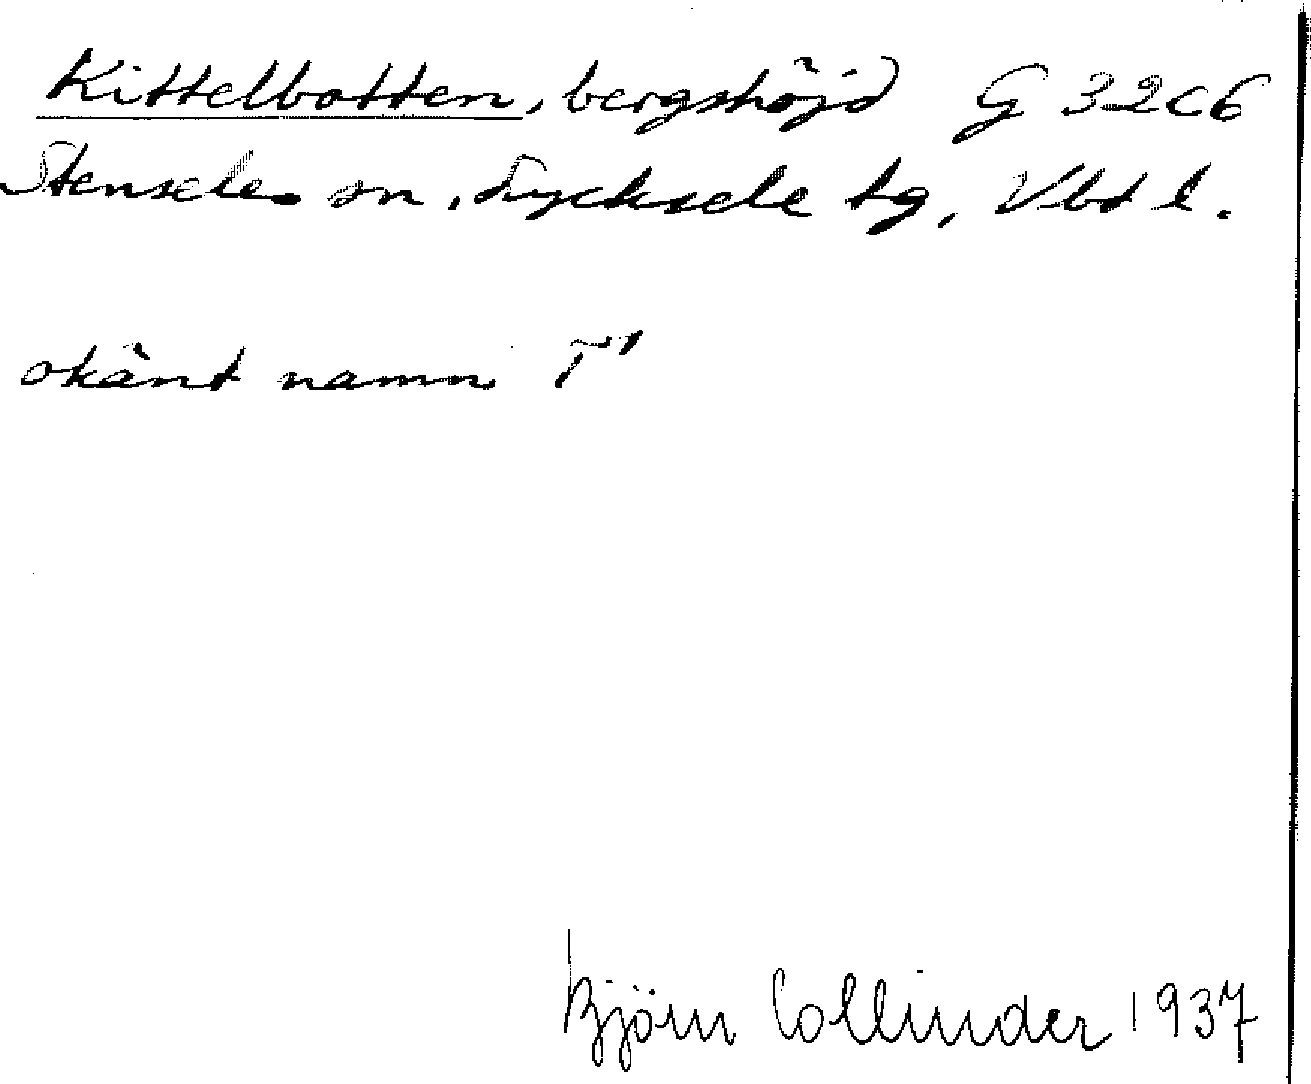 Kittelbotten, bergshöjd G 32c6
Stensele sn, Lycksele tg, Vbd l.
okänt namn T'
Björn Collinder 1937